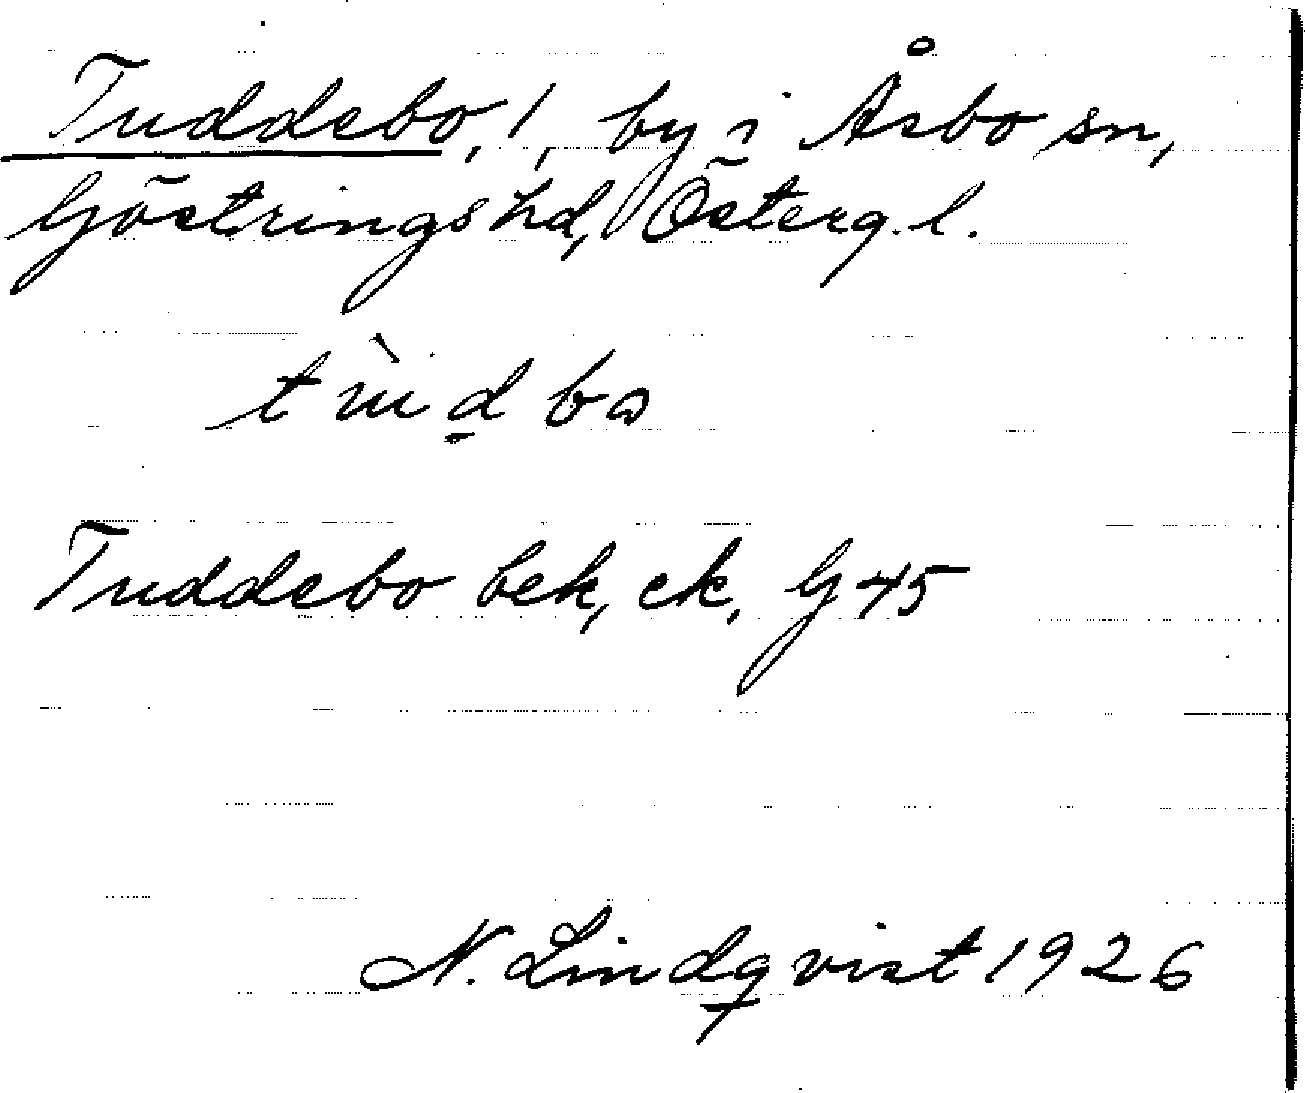 Tuddebo, 1, by i Åsbo sn,
Göstrings hd, Österg. l.
Tuddebo bek, ek, G 45
N. Lindqvist 1926